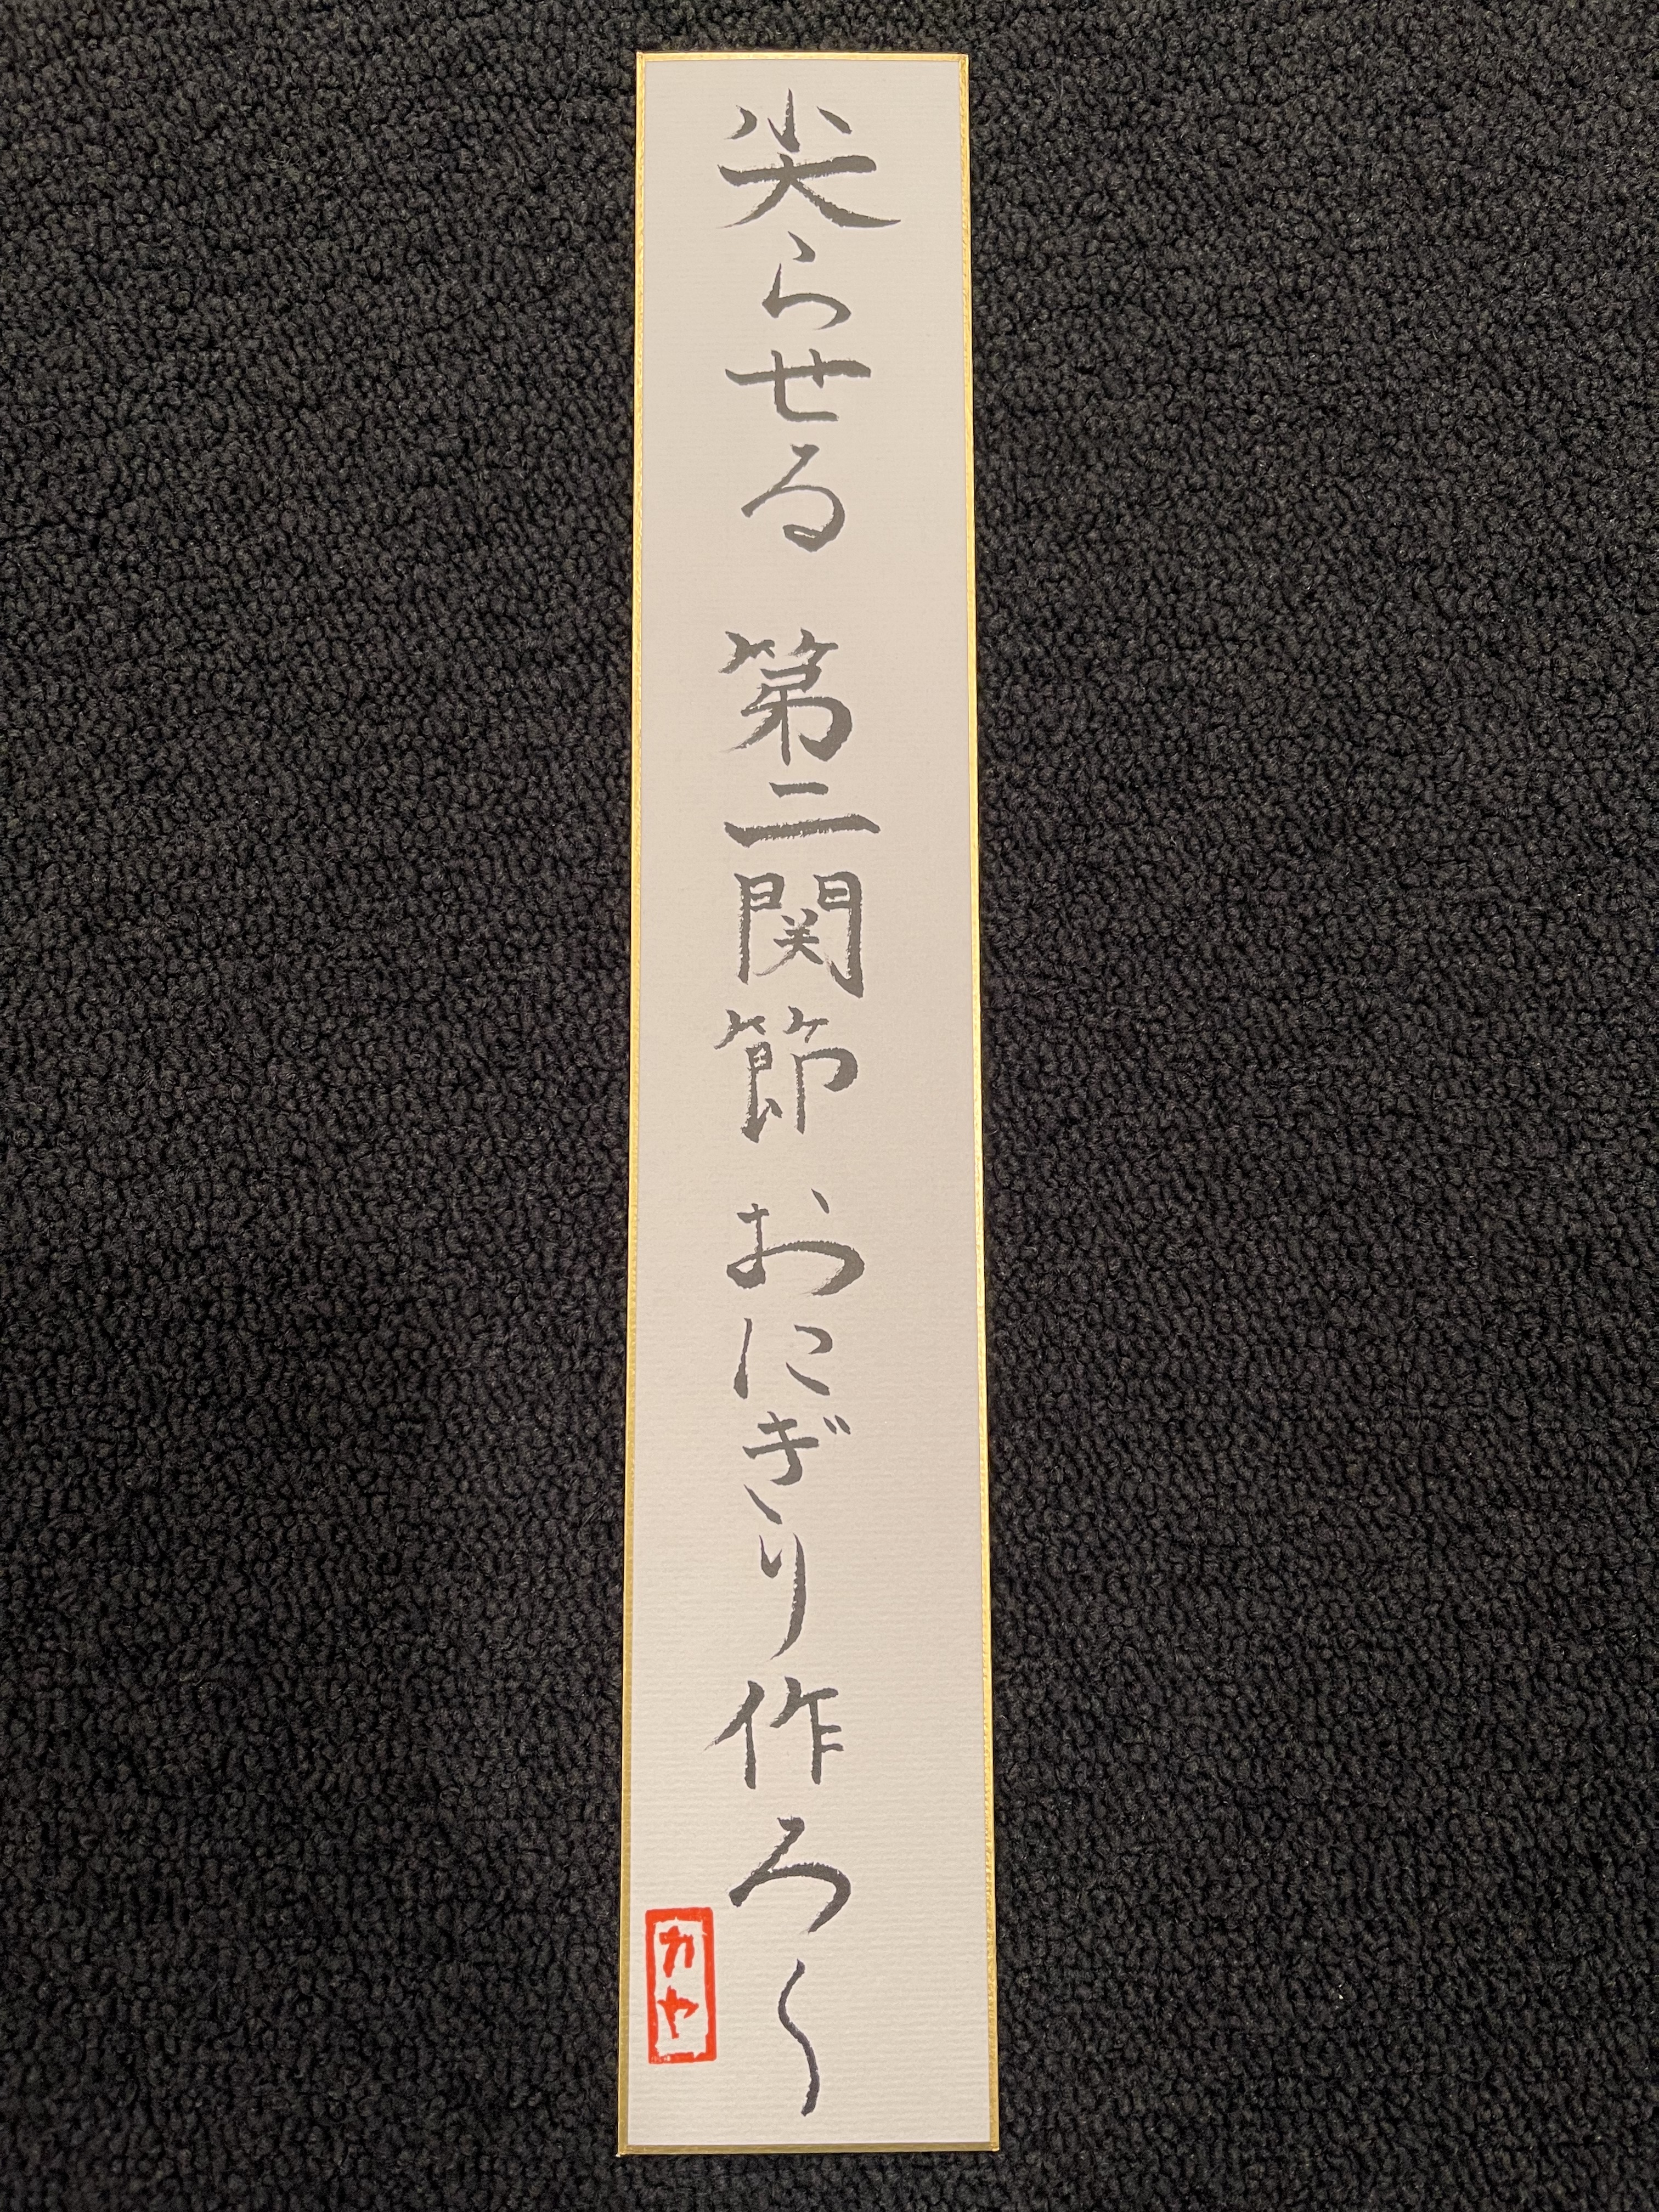 尖らせる 第二関節 おにぎり作ろ〜
カヤ